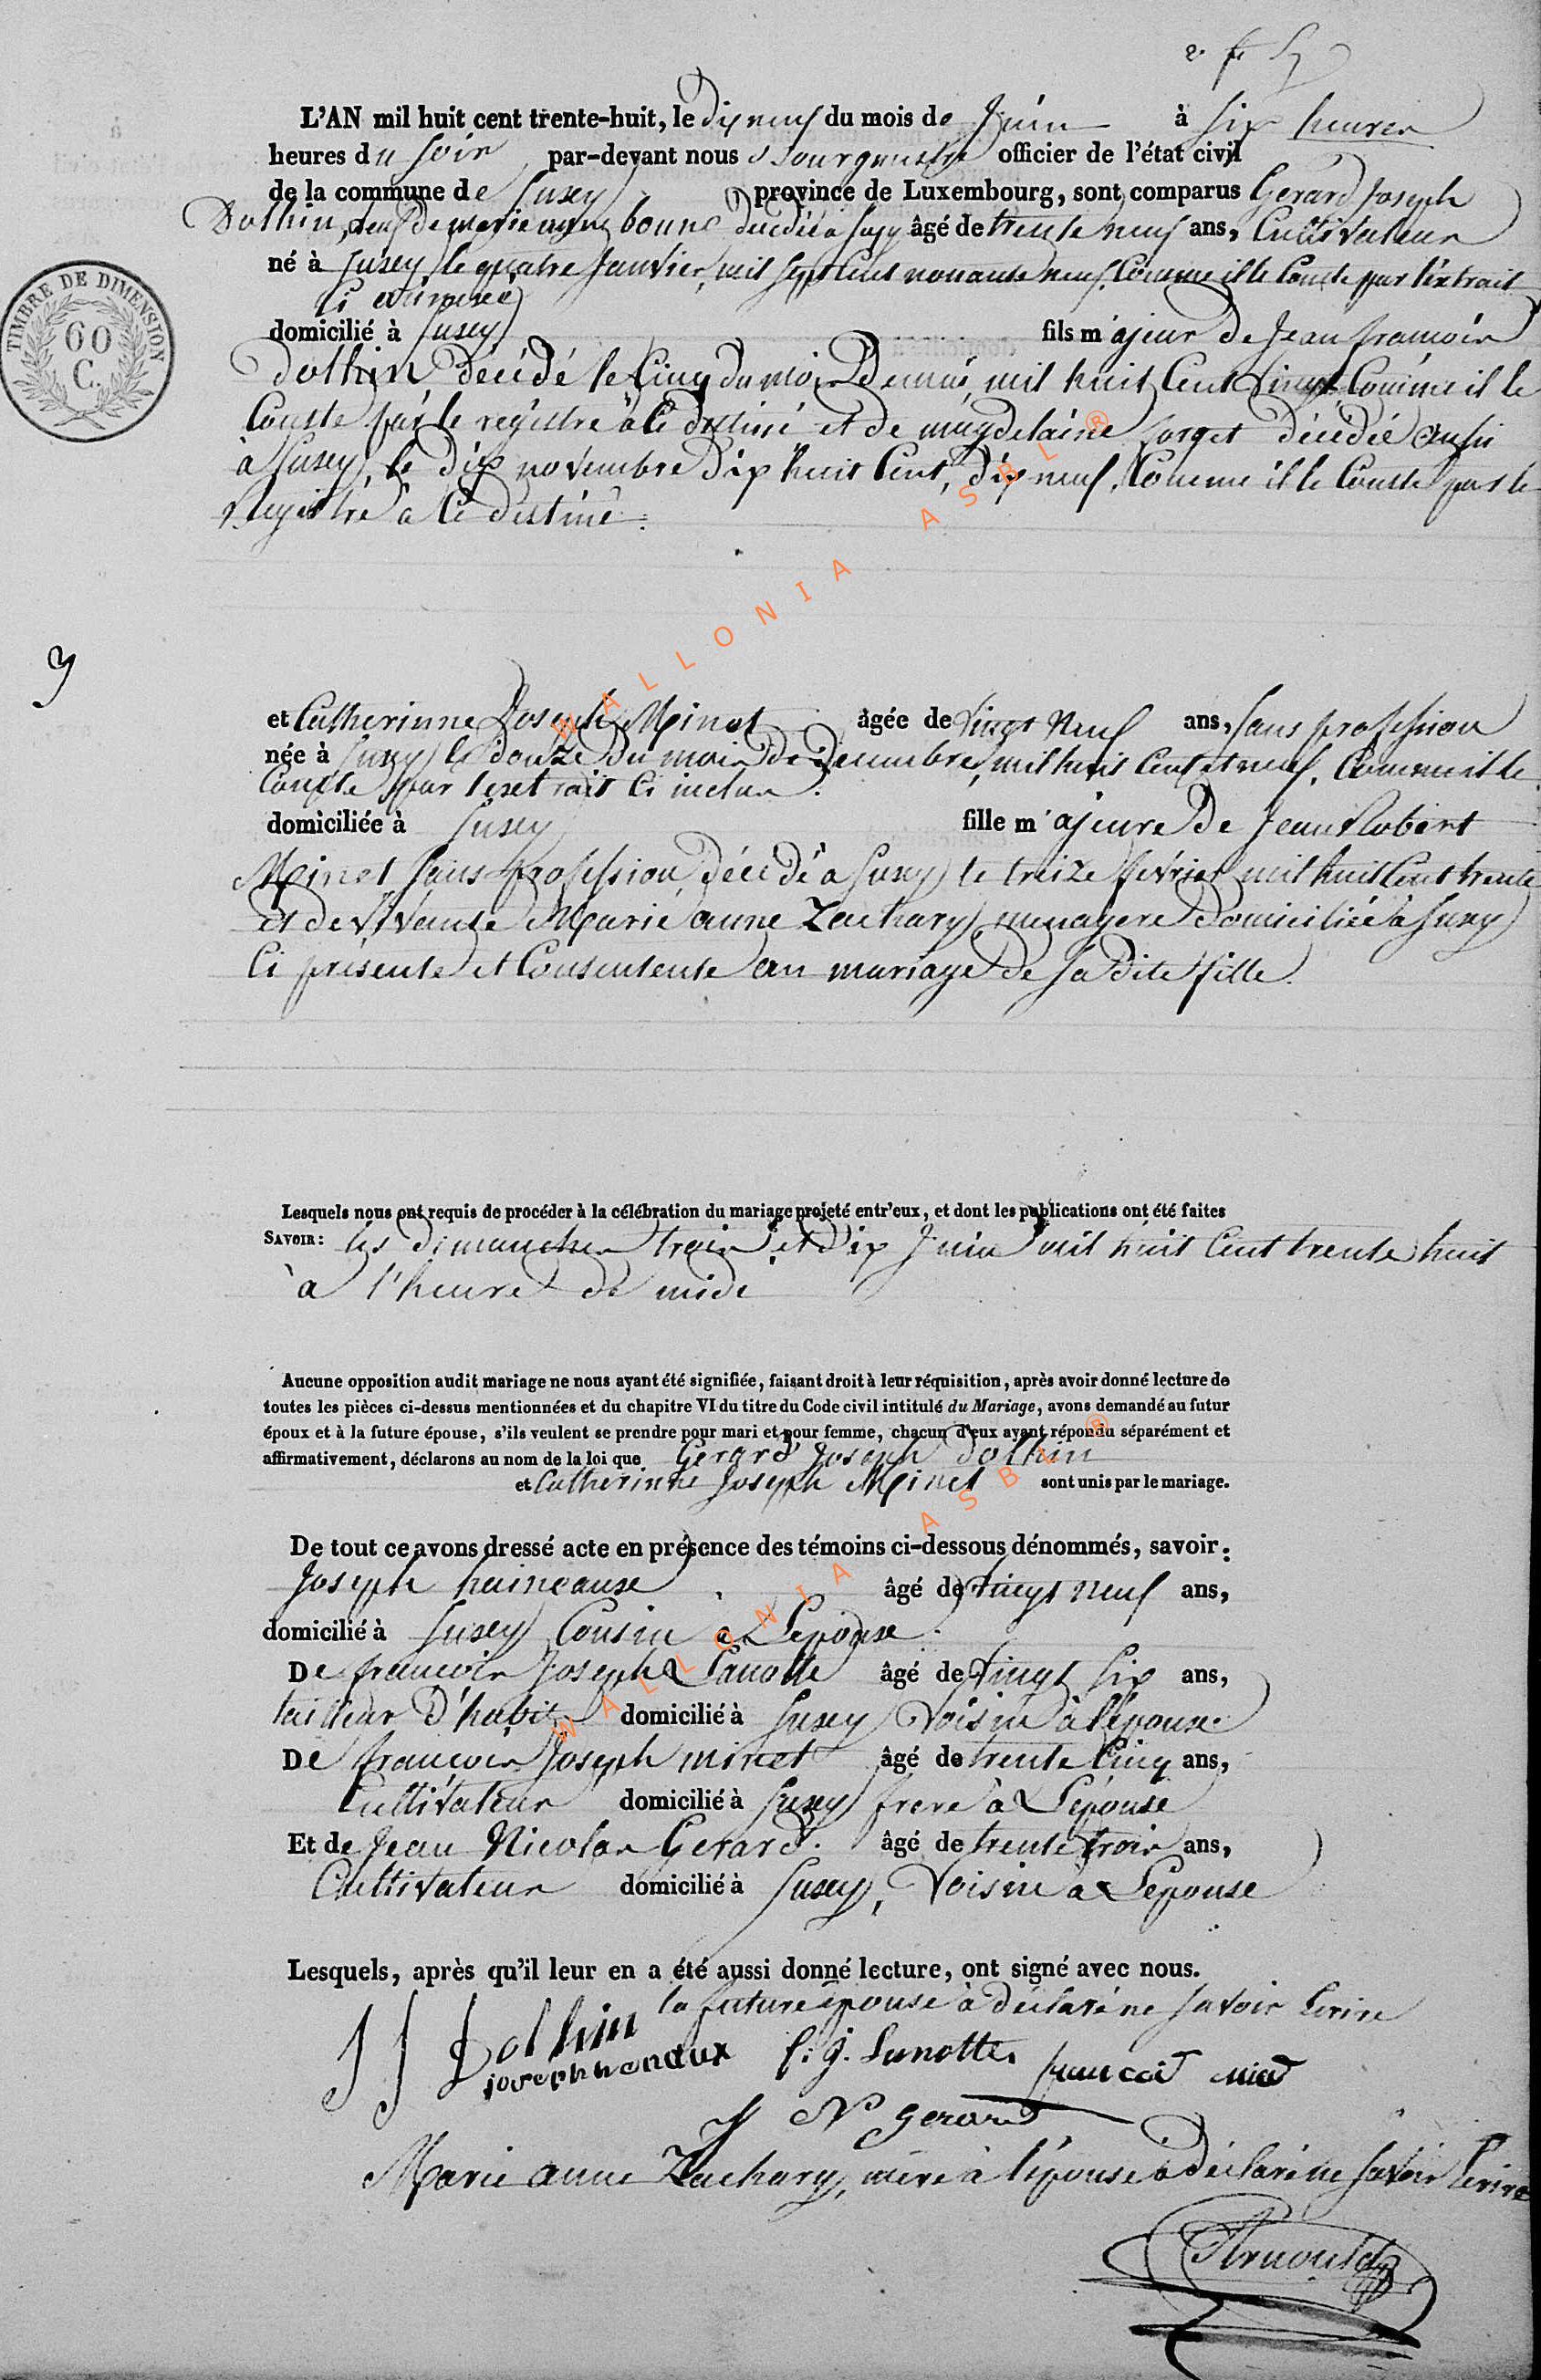 L'AN mil huit cent trente-huit, le dix neuf du mois de Juin à six heures
heures du soir par-devant nous Bourgmestre officier de l'état civil
de la commune de Suxey province de Luxembourg, sont comparus Gerard Joseph
Dothin, veuf de marie bonne décédée à Suxy âgé de trente neuf ans, Cultivateur
né à Suxey le quatre Janvier, mil sept Cent nonante neuf, Comme il le Conste par l'extrait
Ci
domicilié à Suxey fils majeur de Jean françois
Dothin décédé le Cinq du mois De mil huit Cent vingt, Comme il le
Conste par le registre à Ce destiné et de magdelaine Forget décédée aussi
à Suxey, le dix novembre Dix huit Cent, dix neuf, Comme il le Conste par le
Registre à Ce destiné.
TIMBRE DE DIMENSION
60
C.
et Catherinne Joseph Minet âgée de vingt neuf ans, sans profession
née à Suxy le douze du mois de Decembre, mil huit Cent et neuf, Comme il le
Conste par l'extrait Ci inclus.
domiciliée à Suxey fille majeure De Jean Robert
Minet sans profession, décédé à Suxy le treize fevrier mil huit Cent trente
et de vivante Marie anne Zachary menagere Domiciliée à Suxy
Ci présente et Consentente au mariage de sa Dite fille.
Lesquels nous ont requis de procéder à la célébration du mariage projeté entr'eux, et dont les publications ont été faites
SAVOIR: les Dimanches trois et Dix Juin mil huit Cent trente huit
à l'heure de midi
Aucune opposition audit mariage ne nous ayant été signifiée, faisant droit à leur réquisition, après avoir donné lecture de
toutes les pièces ci-dessus mentionnées et du chapitre VI du titre du Code civil intitulé du Mariage, avons demandé au futur
époux et à la future épouse, s'ils veulent se prendre pour mari et pour femme, chacun d'eux ayant répondu séparément et
affirmativement, déclarons au nom de la loi que Gerard Joseph Dothin
et Catherinne Joseph Minet sont unis par le mariage.
De tout ce avons dressé acte en présence des témoins ci-dessous dénommés, savoir:
Joseph haineause âgé de vingt neuf ans,
domicilié à Suxey Cousin à L'epouse.
De francois Joseph Lanotte âgé de vingt six ans,
tailleur d'habit domicilié à Suxey Voisin à l'épouse.
De françois Joseph minet âgé de trente Cinq ans,
Cultivateur domicilié à Suxey frere à L'epouse
Et de Jean Nicolas Gerard. âgé de trente trois ans,
Cultivateur domicilié à Suxey, Voisin à L'epouse
Lesquels, après qu'il leur en a été aussi donné lecture, ont signé avec nous.
la future épouse à déclaré ne savoir Ecrire
Dothin
joseph henaux f. j. Lanotte. francois minet
J N gerard
Marie anne Zachary, mère à l'épouse à déclaré ne savoir Ecrire
Arnould
WALLONIA ASBL ®
WALLONIA ASBL ®